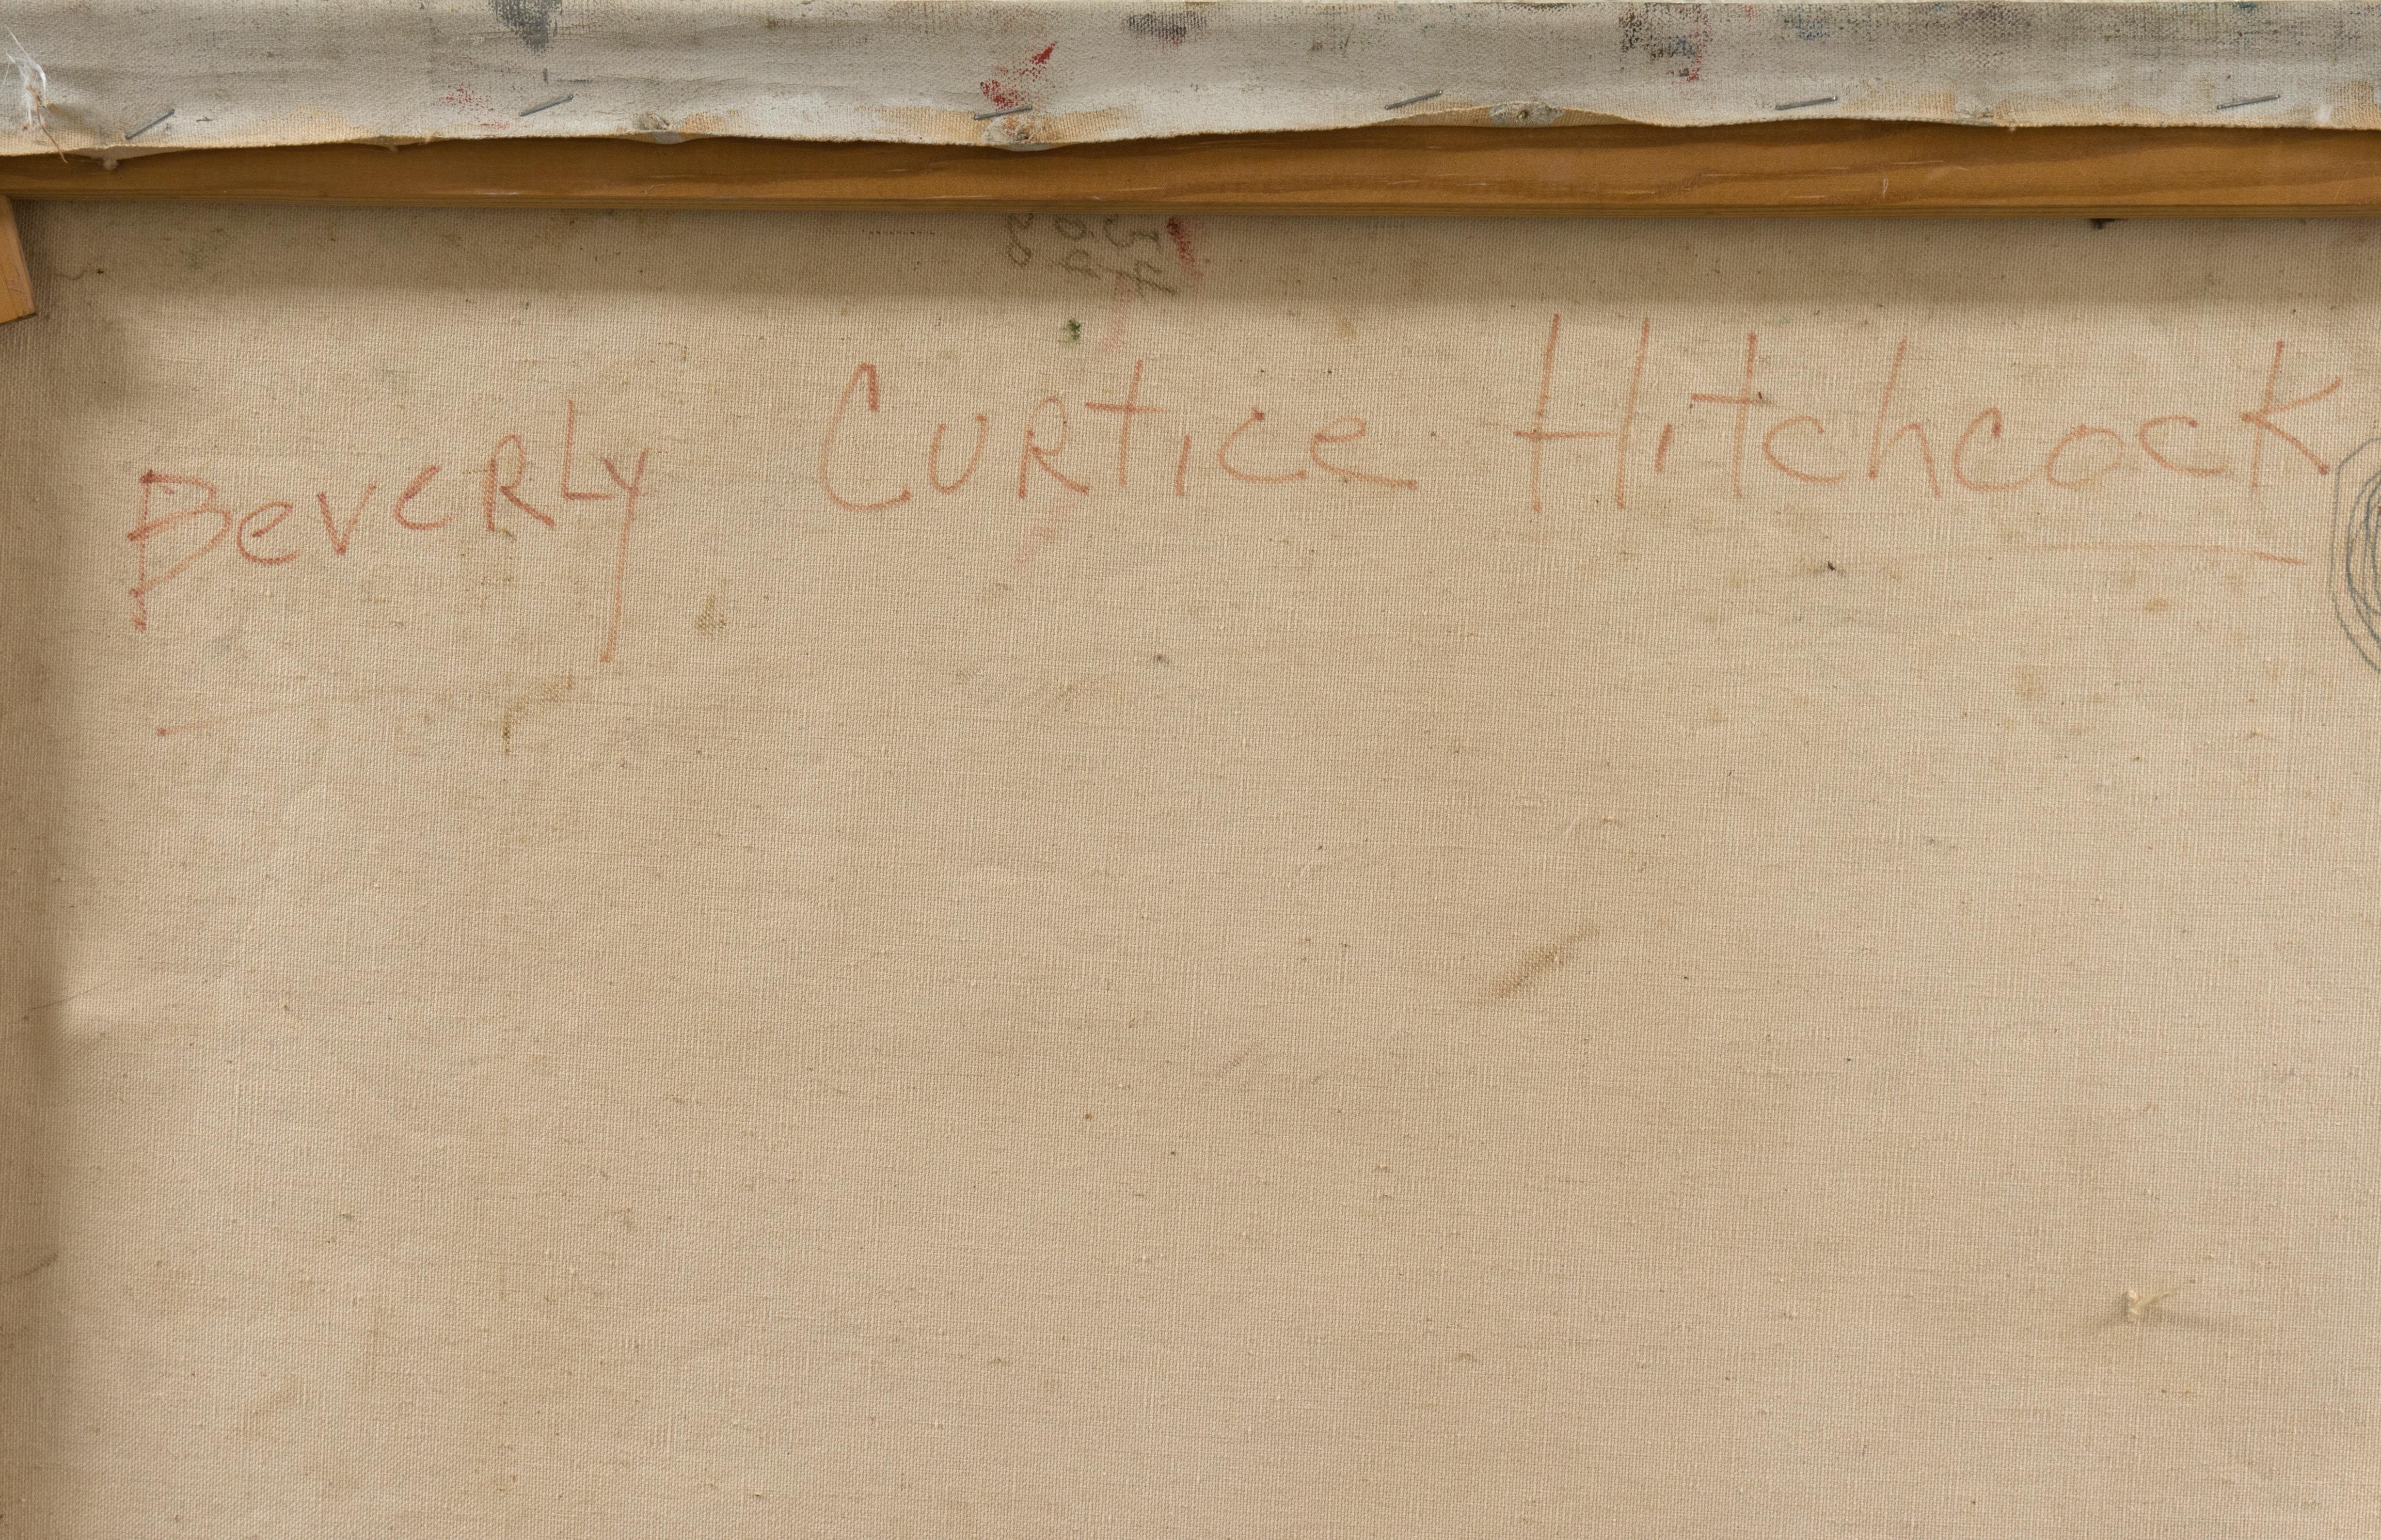 Beverly Curtice Hitchcock